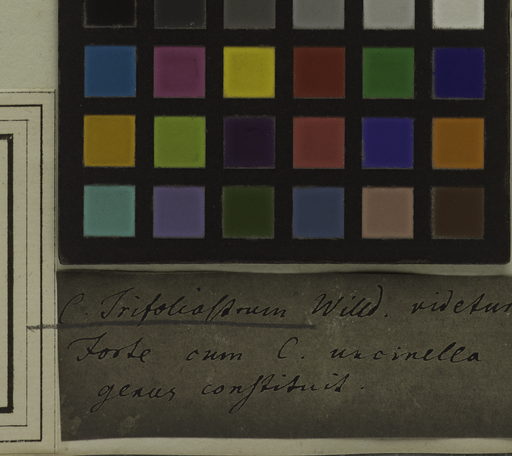 C. Trifoliaſtrum Willd. videtur
Forte cum C. uncinella
genus conſtituit.